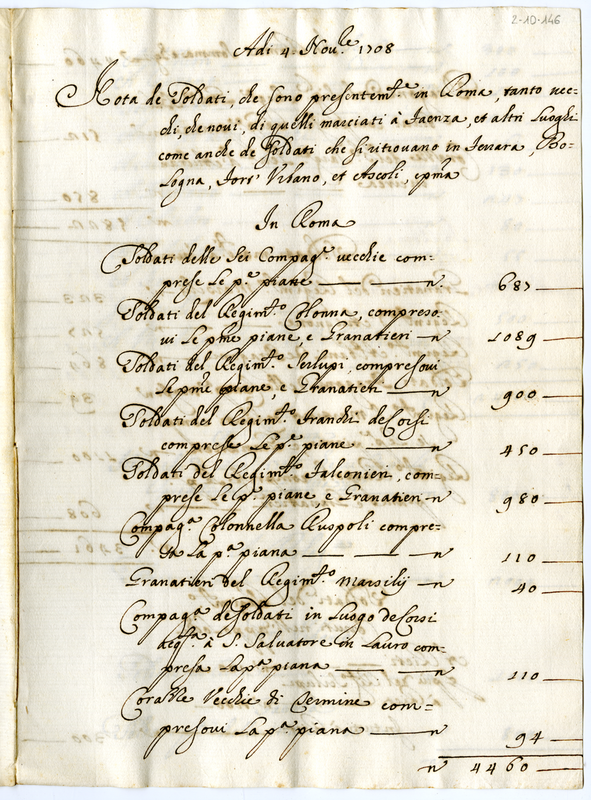 2-10-146
Adi 4 Nov.le 1708
Nota de Soldati, che sono presentem.te in Roma, tanto vec=
chi, che novi, di quelli marciati à Faenza, et altri Luoghi
come anche de Soldati che si ritrovano in Ferrara, Bo=
logna, Fort' Urbano, et Ascoli, cp͞ma
In Roma
Soldati delle Sei Compag.e vecchie com=
prese Le p.e piane — n. 687
Soldati del Regim.to Colonna, compreso=
vi Le pme piane, e Granatieri — n 1089
Soldati del Regim.to Serlupi, compresovi
Le pme piane, e Granatieri — n 900
Soldati del Regim.to Franchi de Corsi
comprese Le p.e piane — n 450
Soldati del Regim.to Falconieri, com=
prese Le p.e piane, e Granatieri — n 980
Compag.a Colonnella Ruspoli compre=
sa La p.a piana — n 110
Granatieri del Regim.to Marsilij — n 40
Compag.a de Soldati in Luogo de Corsi
à S. Salvatore in Lauro com=
presa La p.a piana — n 110
Vecchie di Termine com=
presovi La p.a piana — n 94
n 4460